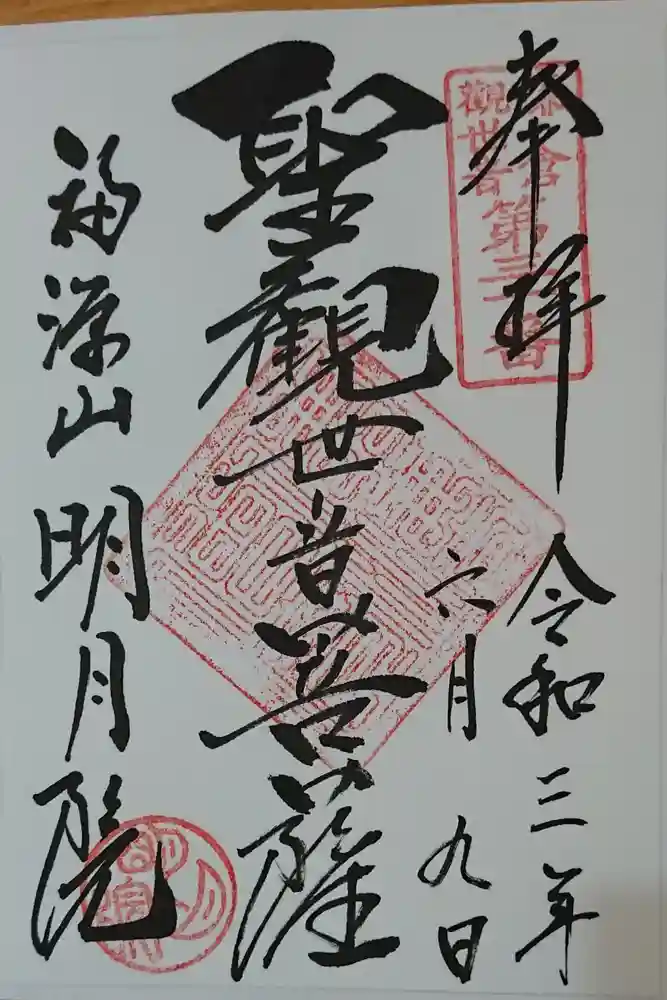 奉拝
鎌倉
觀世音
第三十番
令和三年
六月
九日
聖觀世音菩薩
福源山明月院